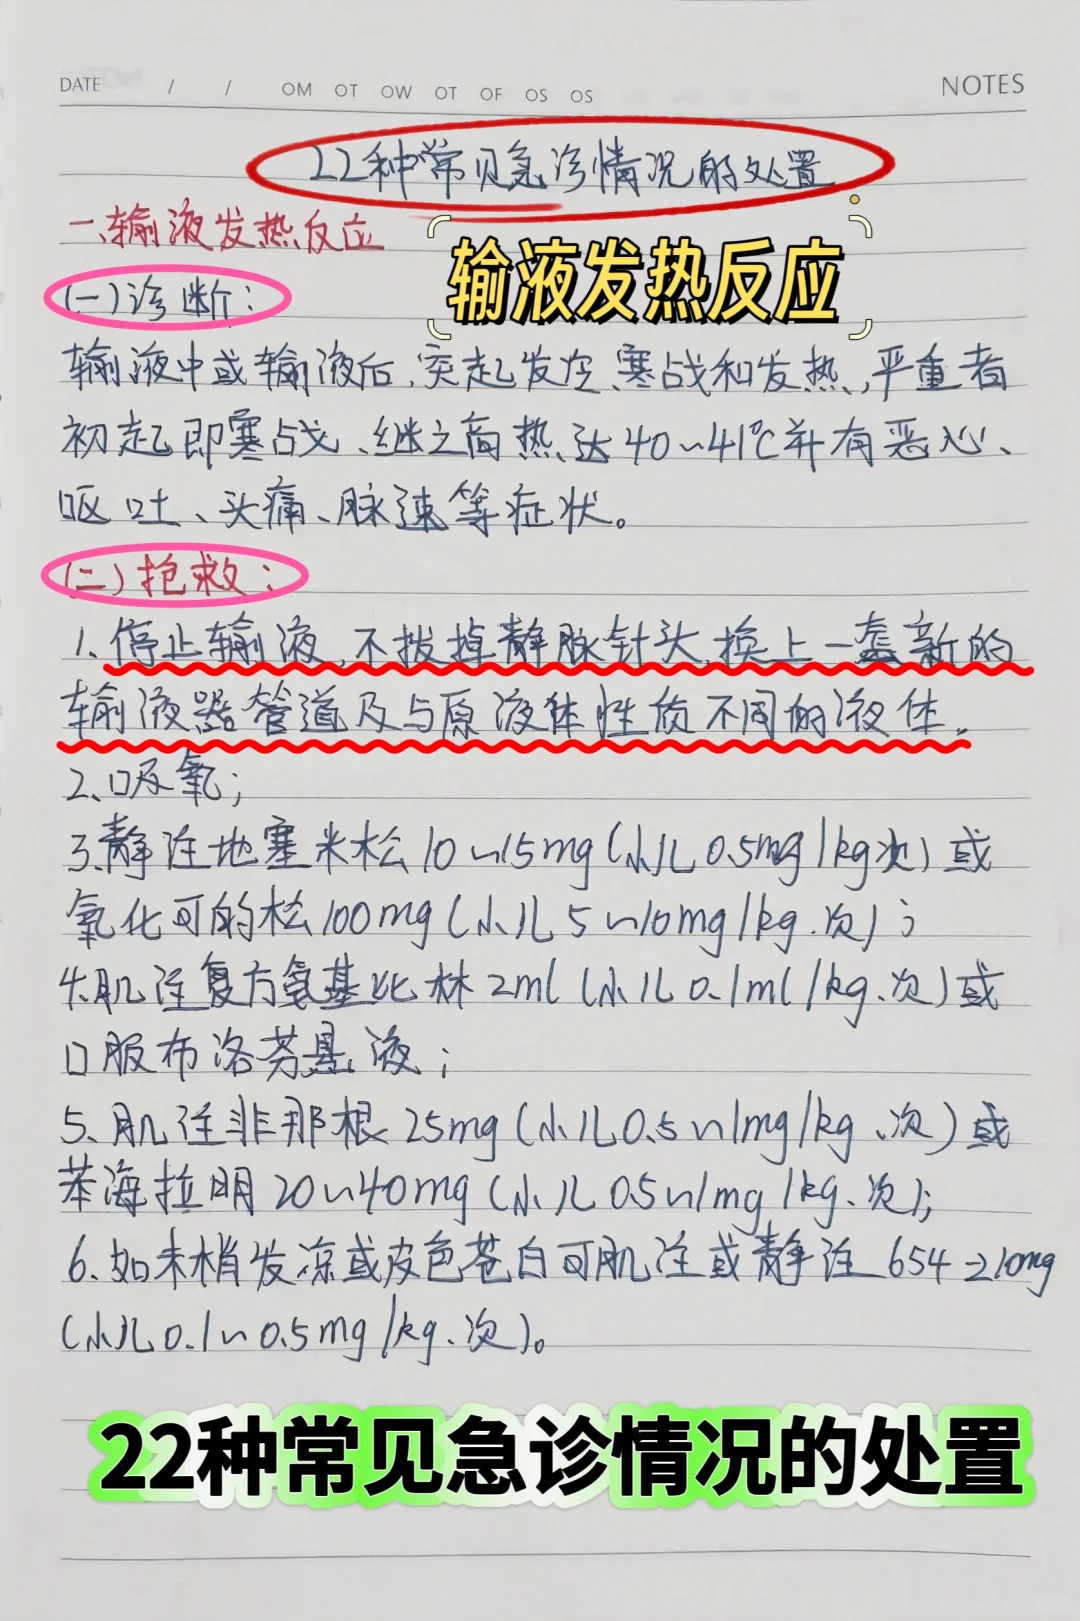 DATE / / OM OT OW OT OF OS OS NOTES
22种常见急诊情况的处置
一、输液发热反应
输液发热反应
(一)诊断:
输液中或输液后,突起发冷、寒战和发热,严重者
初起即寒战、继之高热、达40~41℃并有恶心、
呕吐、头痛、脉速等症状。
(二)抢救:
1、停止输液,不拔掉静脉针头,换上一套新的
输液器管道及与原液体性质不同的液体。
2、吸氧;
3、静注地塞米松10~15mg(小儿0.5mg/kg次)或
氧化可的松100mg(小儿5~10mg/kg.次);
4、肌注复方氨基比林2ml(小儿0.1ml/kg.次)或
口服布洛芬悬液;
5、肌注非那根25mg(小儿0.5~1mg/kg、次)或
苯海拉明20~40mg(小儿0.5~1mg/kg.次);
6、如末梢发凉或皮色苍白可肌注或静注654-210mg
(小儿0.1~0.5mg/kg.次)。
22种常见急诊情况的处置